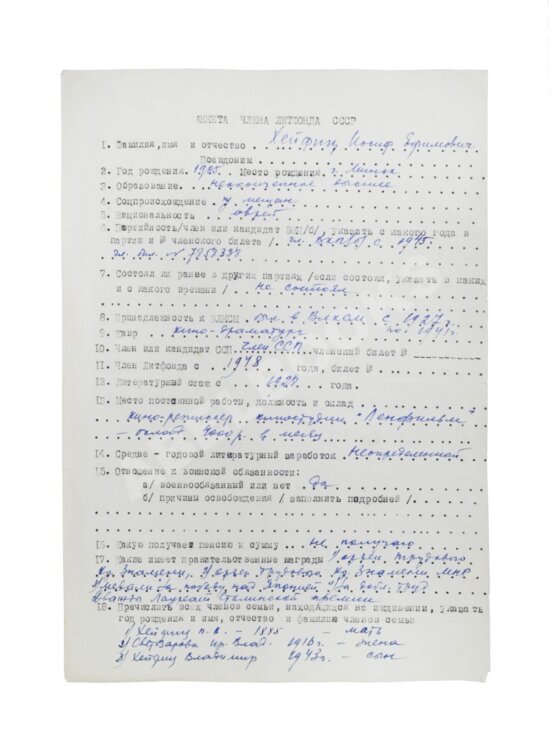 АНКЕТА ЧЛЕНА ЛИТФОНДА СССР
1. Фамилия, имя и отчество Хейфиц Иосиф Ефимович
Псевдоним
2. Год рождения 1905. Место рождения г. Минск
3. Образование незаконченное высшее
4. Соцпроисхождение из мещан
5. Национальность еврей
6. Партийность/член или кандидат ВКП/б/, указать с какого года в
партии и № членского билета /. чл. ВКП(б) с 1945.
чл. бил. №
7. Состоял ли ранее в других партиях /если состоял, указать в каких
и с какого времени / не состоял
8. Принадлежность к ВЛКСМ был в ВЛКСМ с 1927г.
9. Жанр кино-драматург по 1941г.
10. Член или кандидат ССП член ССП членский билет №
11. Член Литфонда с 1948 года, билет №
12. Литературный стаж с 1927 года.
13. Место постоянной работы, должность и оклад
кино-режиссер киностудии "Ленфильм"
– оклад 4000р. в месяц
14. Средне - годовой литературный заработок неопределенный
15. Отношение к воинской обязанности:
а/ военнообязанный или нет да
б/ причины освобождения / заполнить подробней /
16. Какую получает пенсию и сумму не получаю
17. Какие имеет правительственные награды 1) орден Трудового
Кр. Знамени, 2) орден Трудового Кр. Знамени МНР
3) медали За победу над Японией За добл. труд
Дважды Лауреат Сталинской премии
18. Перечислить всех членов семьи, находящихся на иждивении, указать
год рождения и имя, отчество и фамилию членов семьи
1) Хейфиц – 1885 – мать
2) Влад. 1918г. – жена
3) Хейфиц Владимир 1943г. – сын